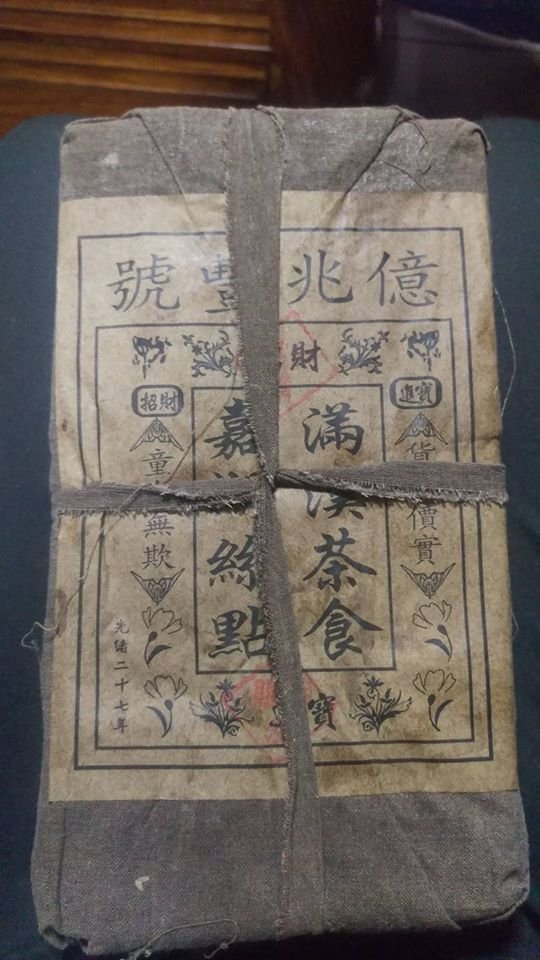 億兆豐號
財
進寶
貨價實
滿漢茶食
嘉絲點
招財
童無欺
光緒二十七年
寶